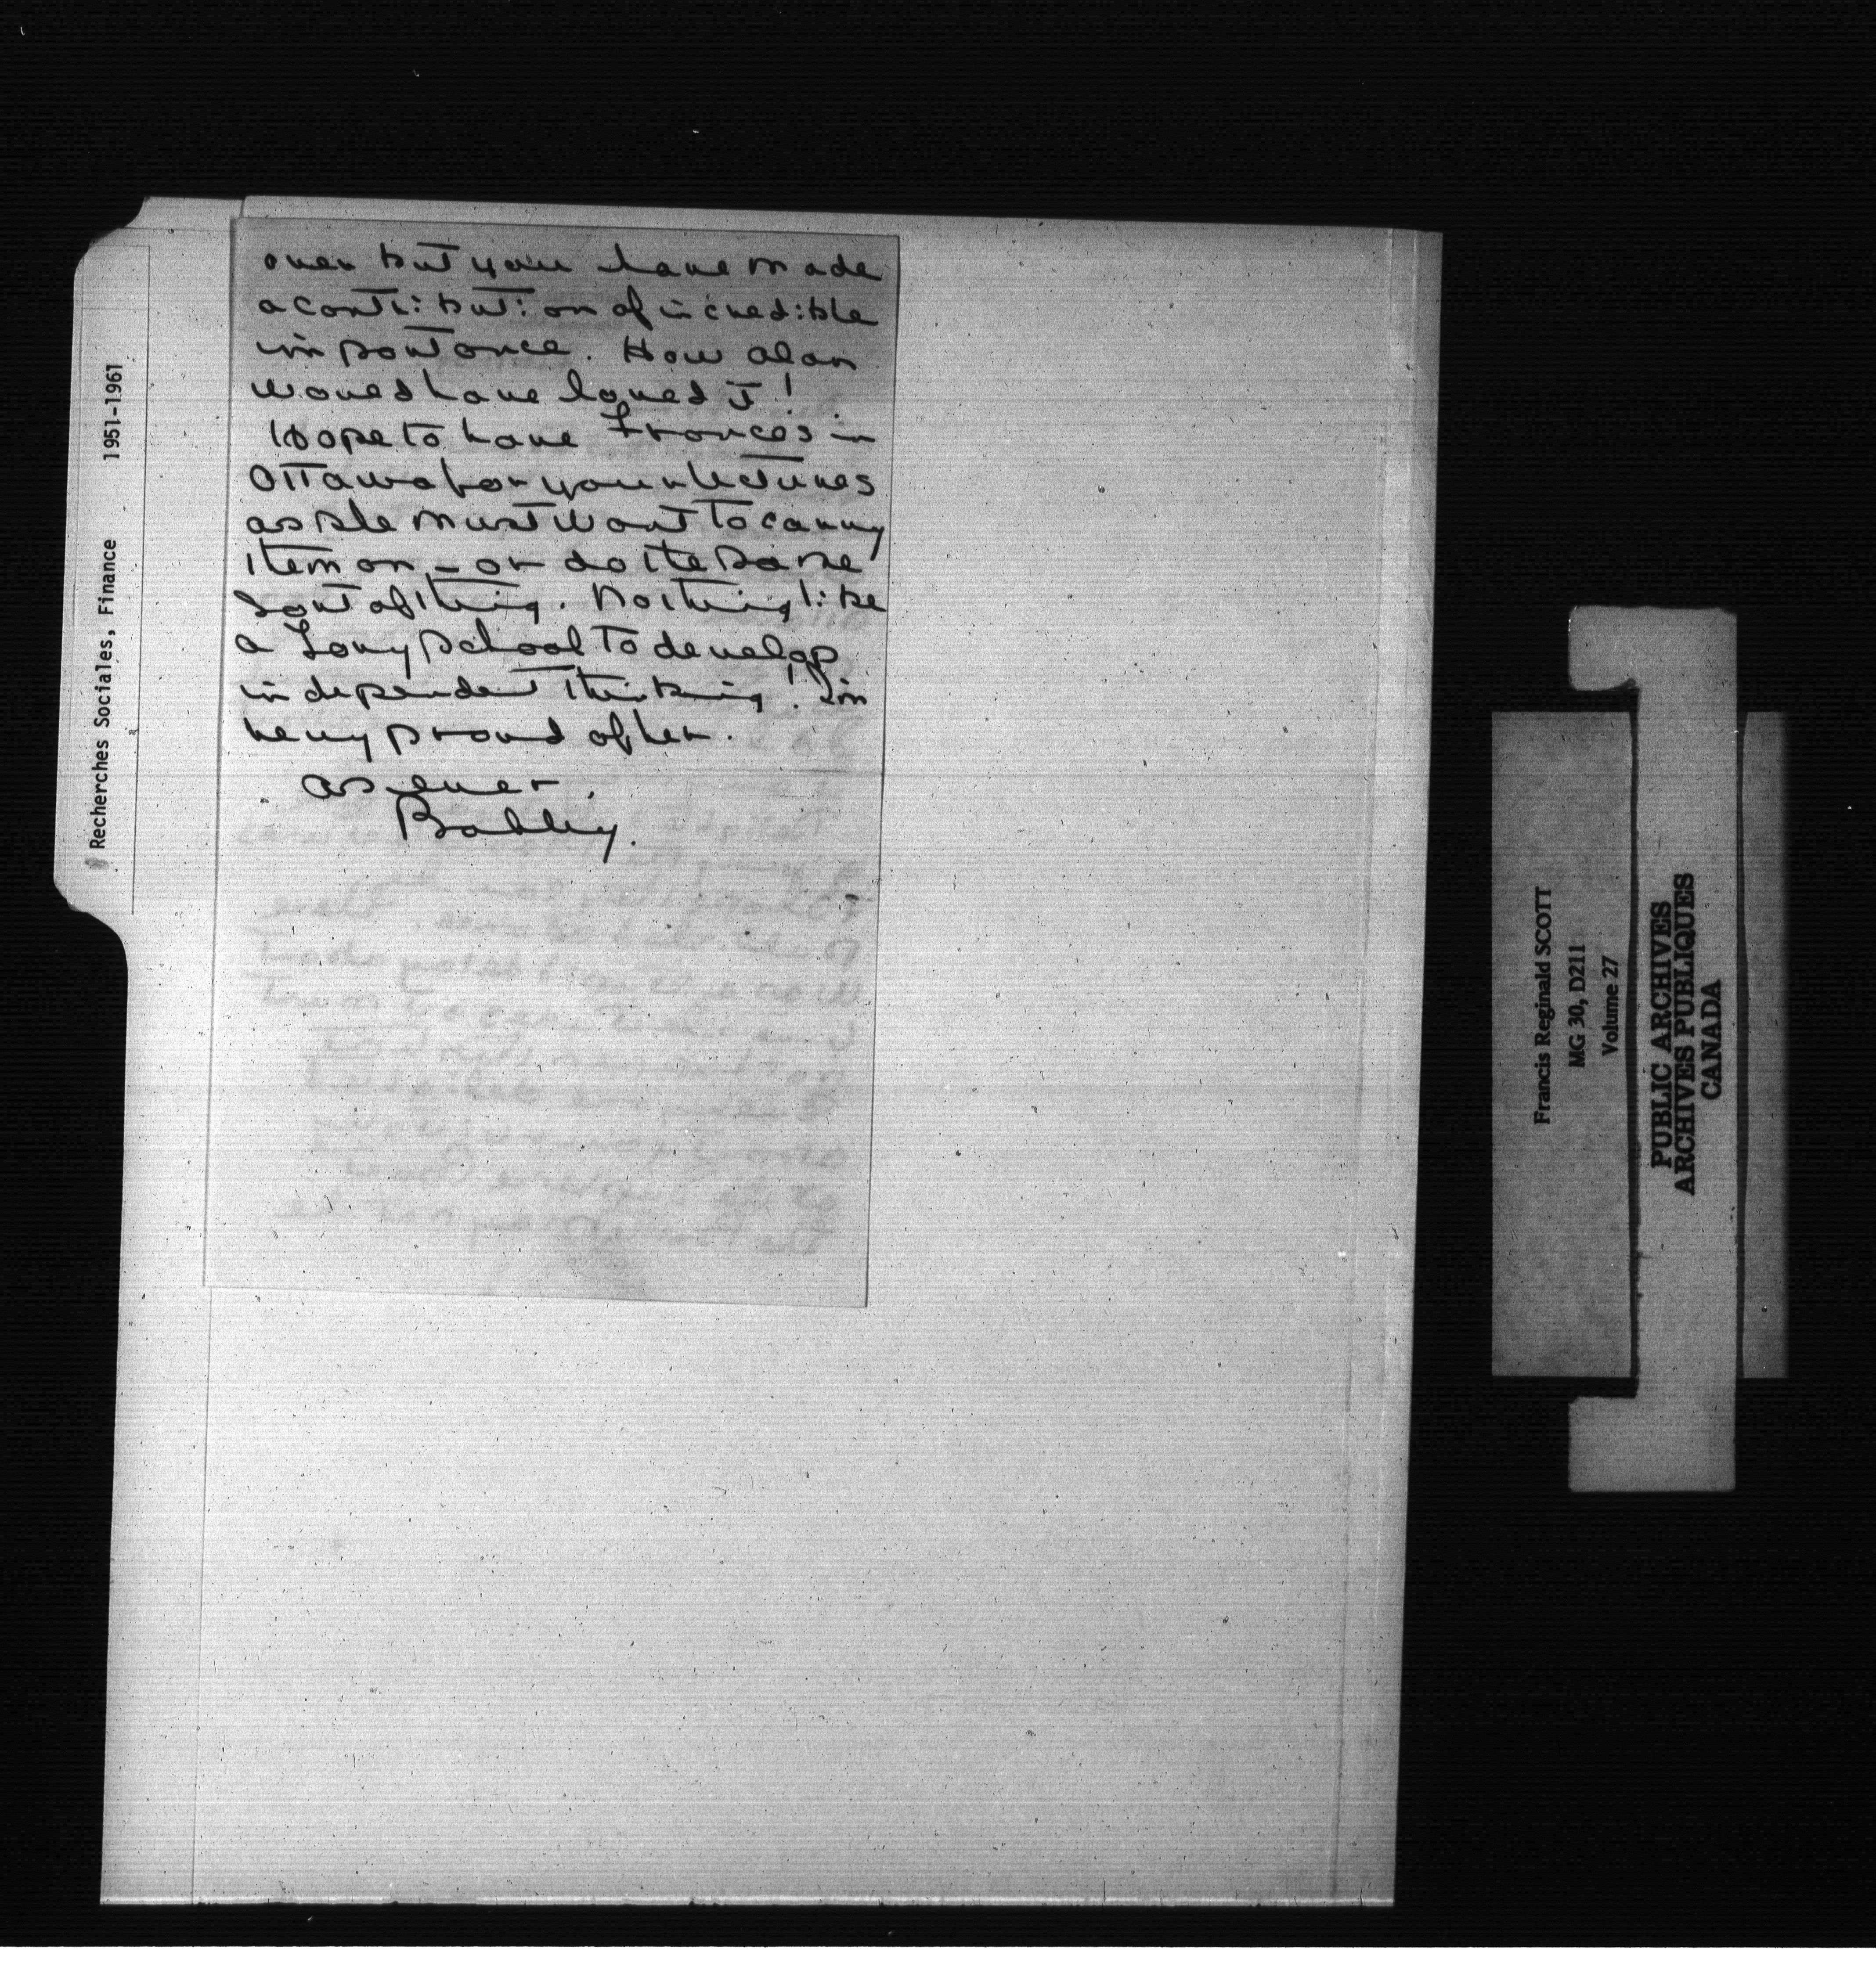 over but you have made
a contribution of incredible
importance. How Alan
would have loved it!
Hope to have Frances in
Ottawa for your lectures
as she must want to carry
them on – or do the same
sort of thing. Nothing like
a Tory school to develop
independent thinking! I'm
very proud of her.
as ever,
Bobby.
Recherches Sociales, Finance 1951-1961
Francis Reginald SCOTT
MG 30, D211
Volume 27
PUBLIC ARCHIVES
ARCHIVES PUBLIQUES
CANADA